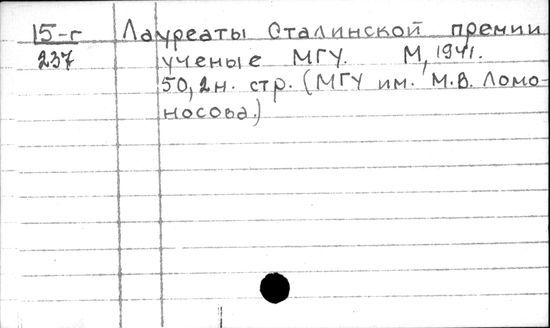 15-г Лауреаты Сталинской премии
237 ученые МГУ. М, 1941.
50, 2 н. стр. (МГУ им. М.В. Ломо-
носова.)